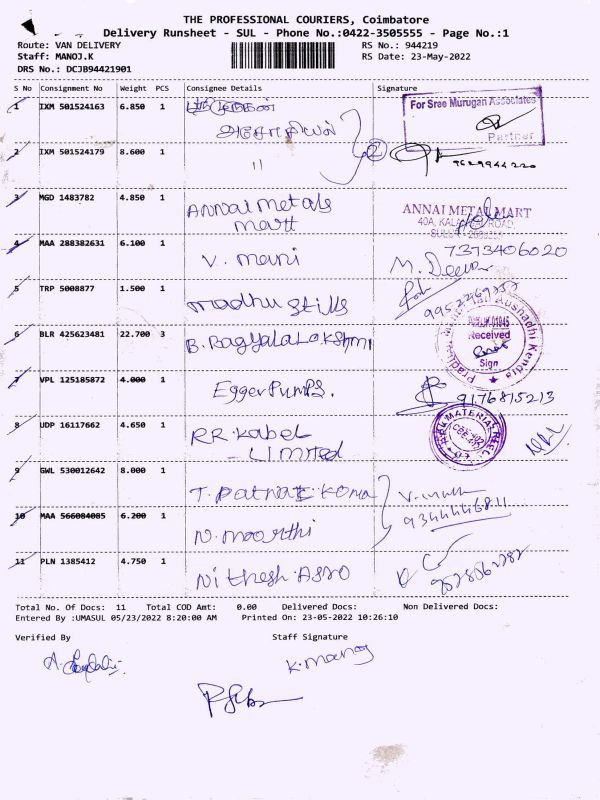 THE PROFESSIONAL COURIERS, Coimbatore
Delivery Runsheet - SUL - Phone No.:0422-3505555 - Page No.:1
Route: VAN DELIVERY RS No.: 944219
Staff: MANOJ.K RS Date: 23-May-2022
DRS No.: DCJB94421901
S No Consignment No Weight PCS Consignee Details Signature
1 IXM 501524163 6.850 1
For Sree Murugan Associates
Partner
2 IXM 501524179 8.600 1 " 2
9629944220
3 MGD 1483782 4.850 1 Annai metals
mart
ANNAI METAL MART
4 MAA 288382631 6.100 1 V. mani
7373406020
M. Deeva
5 TRP 5008877 1.500 1 madhu stills
6 BLR 425623481 22.700 3 B. BagyalaLakshmi
Aushadhi Kendra
Received
Sign
7 VPL 125185872 4.000 1 EggerPumps.
9176815213
8 UDP 16117662 4.650 1 RR. Kabel
Limited
9 GWL 530012642 8.000 1
10 MAA 566084085 6.200 1 N. moorthi
9344446811
11 PLN 1385412 4.750 1 Nithesh. Asro
Total No. Of Docs: 11 Total COD Amt: 0.00 Delivered Docs: Non Delivered Docs:
Entered By :UMASUL 05/23/2022 8:20:00 AM Printed On: 23-05-2022 10:26:10
Verified By Staff Signature
K. manoj